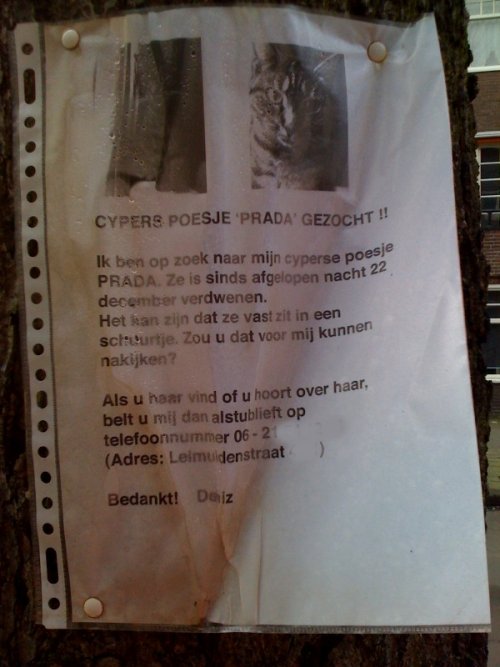 CYPERS POESJE 'PRADA' GEZOCHT !!
Ik ben op zoek naar mijn cyperse poesje
PRADA. Ze is sinds afgelopen nacht 22
december verdwenen.
Het kan zijn dat ze vast zit in een
schuurtje. Zou u dat voor mij kunnen
nakijken?
Als u haar vind of u hoort over haar,
belt u mij dan alstublieft op
telefoonnummer 06 - 21
(Adres: Leimuidenstraat )
Bedankt!